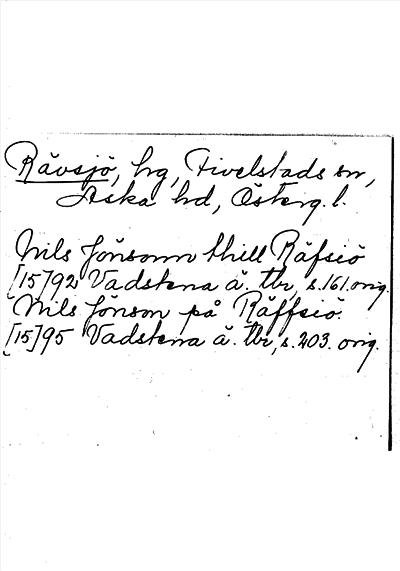 Rävsjö, hg, Fivelstads sn,
Aska hd, Österg. l.
Nils Jönsonn thill Räfsiö
[15]92 Vadstena ä. tbr, s. 161. orig.
Nils Jönson på Räffsiö.
[15]95 Vadstena ä. tbr, s. 203. orig.